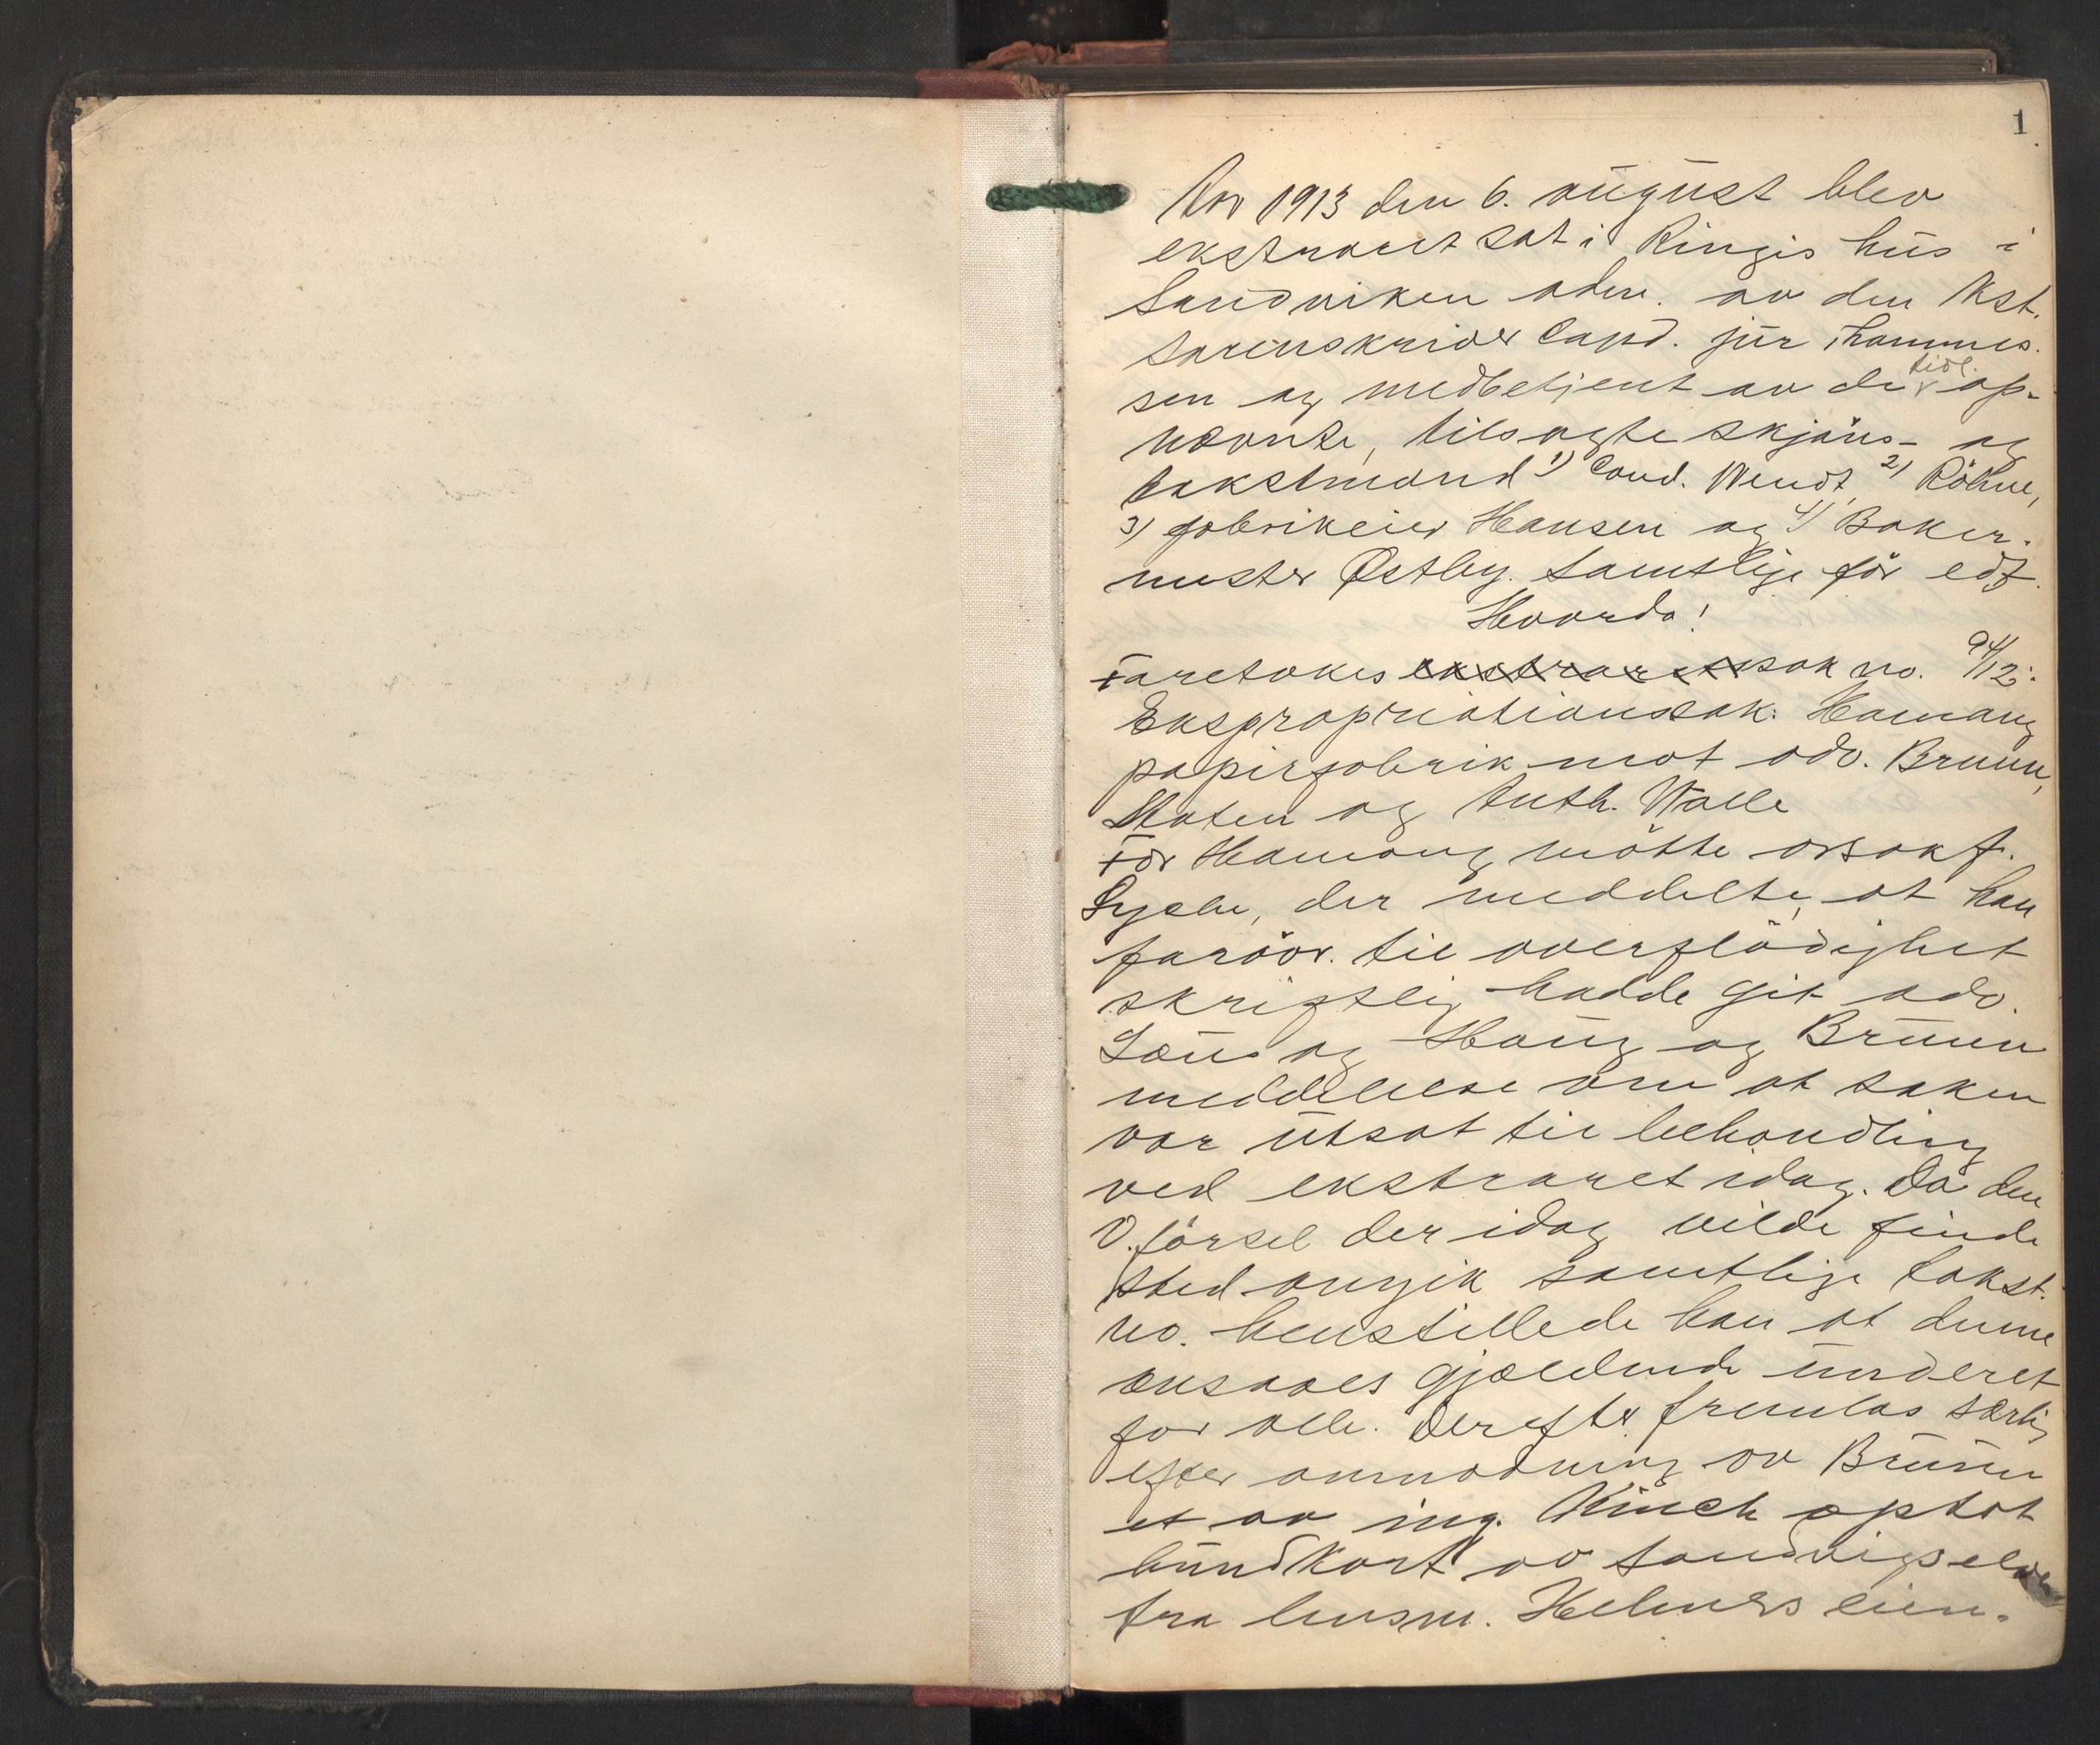 1
Aar 1913 den 6. august blev
ekstraret sat i Ringis hus i
Sandviken adm. av den kst.
sorenskriver Cand. jur Thommes-
sen og medbetjent av de tidl. op-
nævnte, tilsagte skjøns- og
takstmænd 1) Cand. Wendt, 2) Röhne,
3) fabrikeier Hansen og 4) Baker-
mester Østby. Samtlige før edf.
Hvorda!
Foretokes ekstraretssak no. 94/12:
Ekspropriationssak: Hamang
papirfabrik mot adv. Bruun,
Staten og Anth. Walle
For Hamang møtte orsakf.
, der meddelte, at han
forøv. til overflødighet
skriftlig hadde git adv.
og Haug og Bruun
meddelelse om at saken
var utsat til behandling
ved ekstraret idag. Da den
O.førsel der idag vilde finde
sted angik samtlige takst.
no. henstillede han at denne
ansaaes gjældende underet
for alle. Derefter fremlas særlig
efter anmodning av Bruun
et av ing. Kinck optat
bundkart av Sandvigselven
fra husm. Helmers eien-